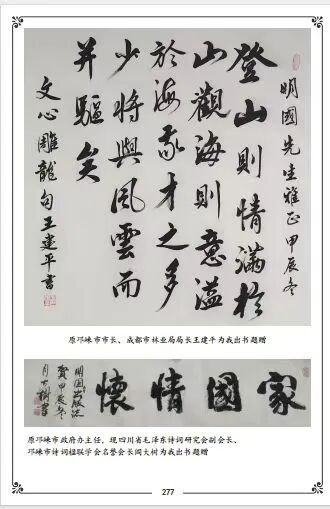 明國先生雅正甲辰冬
登山則情滿於
山觀海則意溢
於海我才之多
少將與風雲而
并驅矣
文心雕龍句王建平書
原邛崃市市长、成都市林业局局长王建平为我出书题赠
家國情懷
明国出版誌
賀甲辰冬
月大樹書
原邛崃市政府办主任，现四川省毛泽东诗词研究会副会长、
邛崃市诗词楹联学会名誉会长闵大树为我出书题赠
277